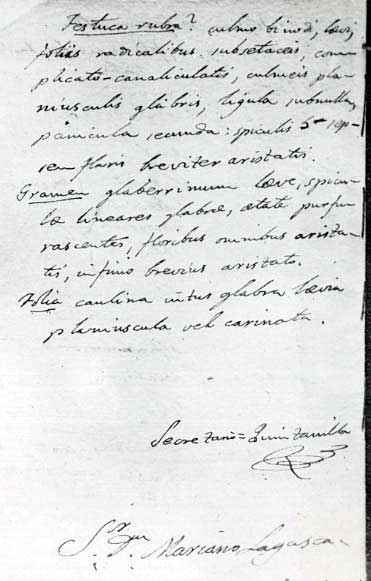 Festuca rubra? culmo binodi, lævi,
foliis radicalibus subsetaceis, com
plicato-canaliculatis, culmeis pla
niusculis glabris, ligula subnulla,
panicula secunda: spiculis 5 - sep
tem floris breviter aristatis.
Gramen glaberrimum læve, spicu
læ lineares glabræ, ætate purpu
rascentes, floribus omnibus arista
tis, infimo brevius aristato.
Folia caulina intus glabra lævia
planiuscula vel carinata.
Secretario = Quintanilla
S.r D.n Mariano Lagasca